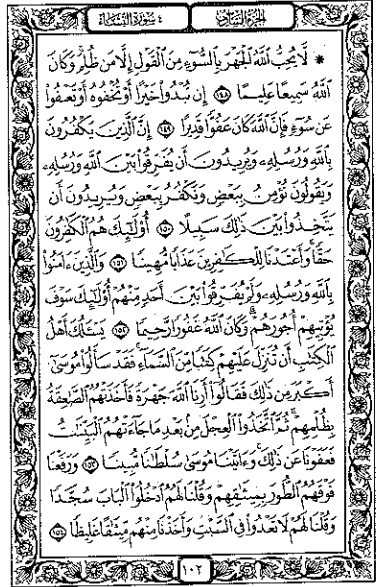 الجزء السادس
٤ سورة النساء
* لَّا يُحِبُّ ٱللَّهُ ٱلْجَهْرَ بِٱلسُّوٓءِ مِنَ ٱلْقَوْلِ إِلَّا مَن ظُلِمَ ۚ وَكَانَ
ٱللَّهُ سَمِيعًا عَلِيمًا ١٤٨ إِن تُبْدُوا۟ خَيْرًا أَوْ تُخْفُوهُ أَوْ تَعْفُوا۟
عَن سُوٓءٍ فَإِنَّ ٱللَّهَ كَانَ عَفُوًّا قَدِيرًا ١٤٩ إِنَّ ٱلَّذِينَ يَكْفُرُونَ
بِٱللَّهِ وَرُسُلِهِۦ وَيُرِيدُونَ أَن يُفَرِّقُوا۟ بَيْنَ ٱللَّهِ وَرُسُلِهِۦ
وَيَقُولُونَ نُؤْمِنُ بِبَعْضٍ وَنَكْفُرُ بِبَعْضٍ وَيُرِيدُونَ أَن
يَتَّخِذُوا۟ بَيْنَ ذَٰلِكَ سَبِيلًا ١٥٠ أُو۟لَٰٓئِكَ هُمُ ٱلْكَٰفِرُونَ
حَقًّا ۚ وَأَعْتَدْنَا لِلْكَٰفِرِينَ عَذَابًا مُّهِينًا ١٥١ وَٱلَّذِينَ ءَامَنُوا۟
بِٱللَّهِ وَرُسُلِهِۦ وَلَمْ يُفَرِّقُوا۟ بَيْنَ أَحَدٍ مِّنْهُمْ أُو۟لَٰٓئِكَ سَوْفَ
يُؤْتِيهِمْ أُجُورَهُمْ ۗ وَكَانَ ٱللَّهُ غَفُورًا رَّحِيمًا ١٥٢ يَسْـَٔلُكَ أَهْلُ
ٱلْكِتَٰبِ أَن تُنَزِّلَ عَلَيْهِمْ كِتَٰبًا مِّنَ ٱلسَّمَآءِ ۚ فَقَدْ سَأَلُوا۟ مُوسَىٰٓ
أَكْبَرَ مِن ذَٰلِكَ فَقَالُوٓا۟ أَرِنَا ٱللَّهَ جَهْرَةً فَأَخَذَتْهُمُ ٱلصَّٰعِقَةُ
بِظُلْمِهِمْ ۚ ثُمَّ ٱتَّخَذُوا۟ ٱلْعِجْلَ مِنۢ بَعْدِ مَا جَآءَتْهُمُ ٱلْبَيِّنَٰتُ
فَعَفَوْنَا عَن ذَٰلِكَ ۚ وَءَاتَيْنَا مُوسَىٰ سُلْطَٰنًا مُّبِينًا ١٥٣ وَرَفَعْنَا
فَوْقَهُمُ ٱلطُّورَ بِمِيثَٰقِهِمْ وَقُلْنَا لَهُمُ ٱدْخُلُوا۟ ٱلْبَابَ سُجَّدًا
وَقُلْنَا لَهُمْ لَا تَعْدُوا۟ فِى ٱلسَّبْتِ وَأَخَذْنَا مِنْهُم مِّيثَٰقًا غَلِيظًا ١٥٤
١٠٢